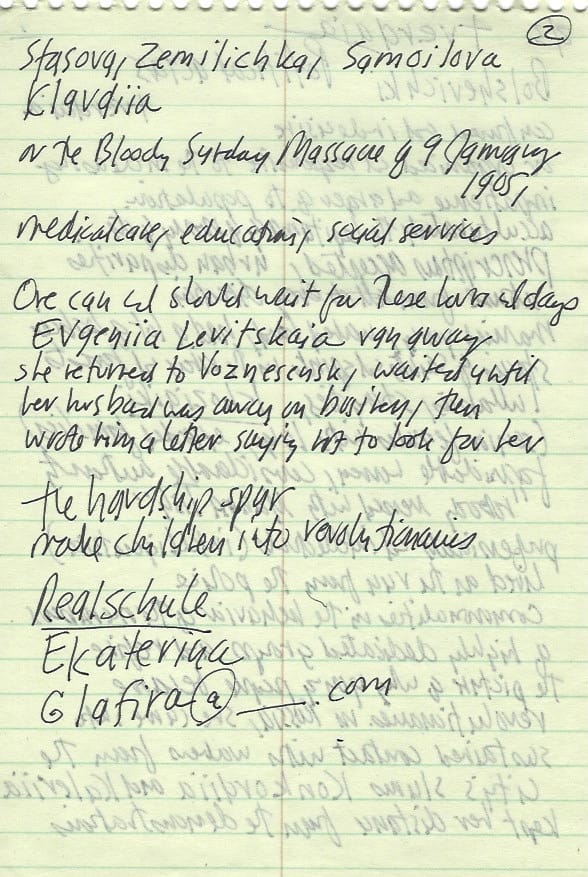 2
Stasova, Zemilichka, Samoilova
Klavdiia
on the Bloody Sunday Massacre of 9 January
1905,
medical care, education, social services
One can and should wait for these hours and days
Evgeniia Levitskaia ran away
she returned to Voznesensk, waited until
her husband was away on business, then
wrote him a letter saying not to look for her
the hardship spur
make children into revolutionaries
Realschule
Ekaterina
Glafira@___.com